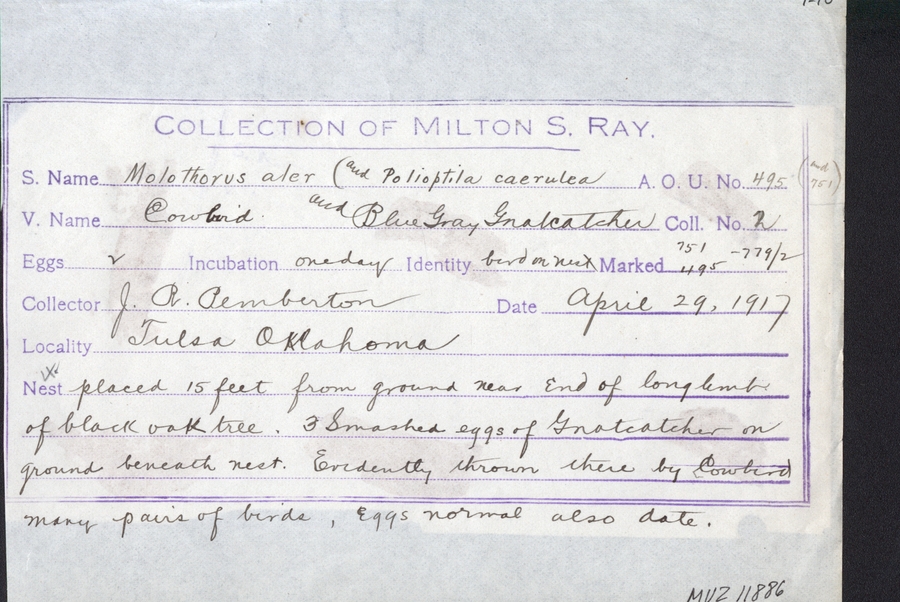 COLLECTION OF MILTON S. RAY.
S. Name Molothorus ater (and Polioptila caerulea A. O. U. No. 495 (and 751)
V. Name Cowbird. and Blue Gray Gnatcatcher Coll. No. 2
Eggs 2 Incubation one day Identity bird on nest Marked 751 495 -779/2
Collector J. R. Pemberton Date April 29, 1917
Locality Tulsa Oklahoma
Nest placed 15 feet from ground near End of long limb
of black oak tree. 3 Smashed eggs of Gnatcatcher on
ground beneath nest. Evidently thrown there by Cowbird
many pairs of birds, Eggs normal also date.
MVZ 11886